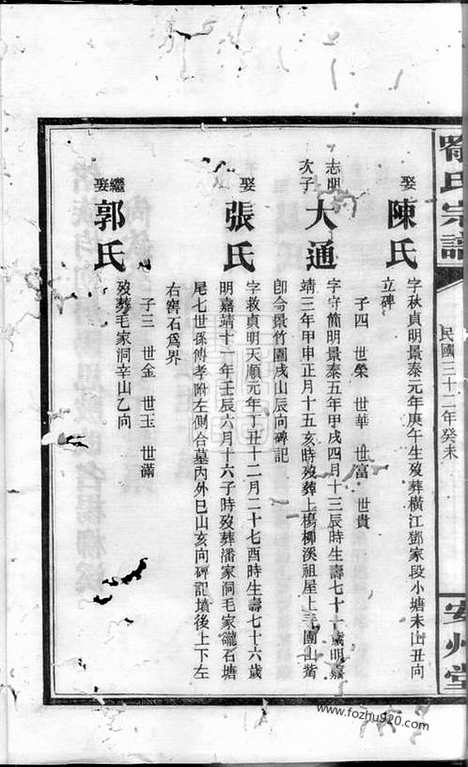 氏宗譜
民國三十二年癸未
安州堂
娶
陳氏
字秋貞明景泰元年庚午生歿葬橫江鄧家段小塘未山丑向
立碑
子四 世榮 世華 世富 世貴
志明
次子
大通
字守簡明景泰五年甲戌四月十三辰時生壽七十一歲明嘉
靖三年甲申正月十五亥時歿葬上楊柳溪祖屋上手團山嘴
卽今景竹園戌山辰向碑記
娶
張氏
字救貞明天順元年丁丑十二月二十七酉時生壽七十六歲
明嘉靖十一年壬辰六月十六子時歿葬潘家洞毛家隴石塘
尾七世孫傳孝附左側合墓內外巳山亥向碑記墳後上下左
右窖石爲界
子三 世金 世玉 世滿
繼
娶
郭氏
歿葬毛家洞辛山乙向
www.fozhu920.com